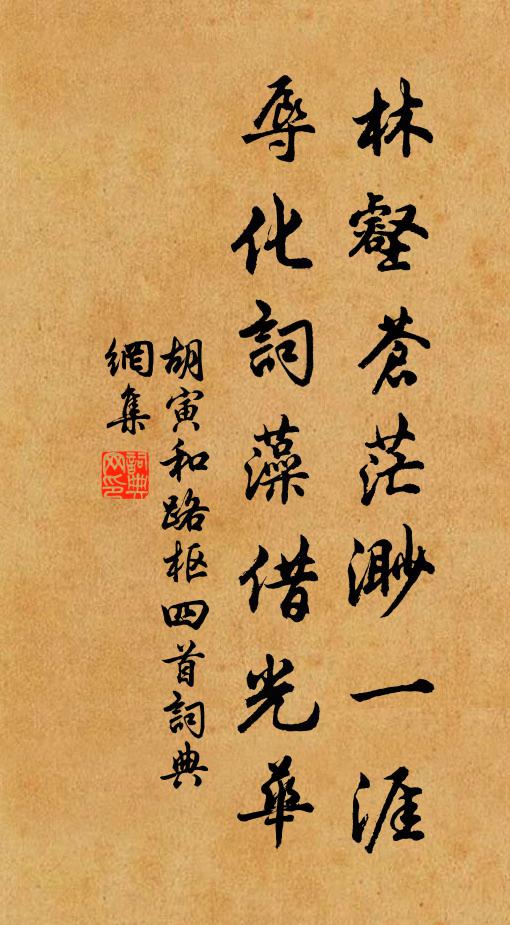 林壑蒼茫渺一涯
辱化詞藻借光華
胡寅和路樞四首詞典
網集
詞典网印